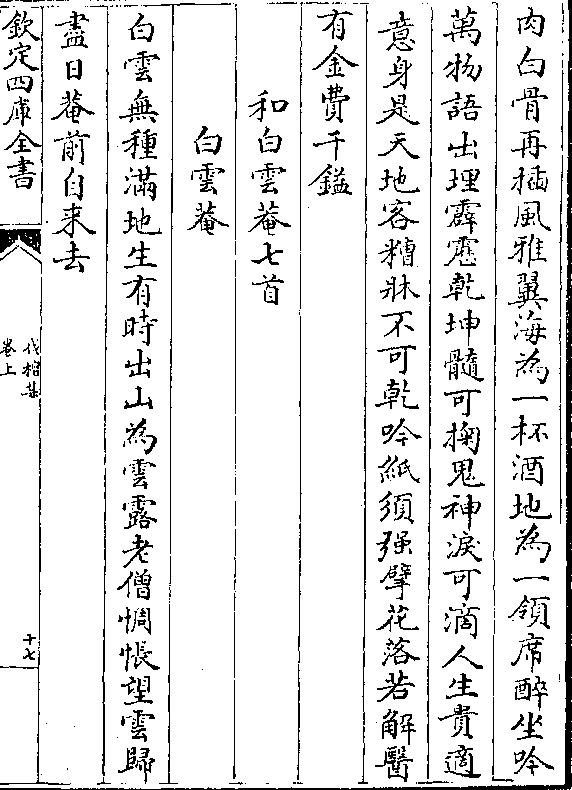 肉白骨再揷風雅翼海為一杯酒地為一領席醉坐吟
萬物語出埋霹靂乾坤髓可掬鬼神淚可滴人生貴適
意身是天地客糟牀不可乾吟紙須强擘花落若解醫
有金費千鎰
和白雲菴七首
白雲菴
白雲無種滿地生有時出山為雲露老僧惆悵望雲歸
盡日菴前自来去
欽定四庫全書
伐檀集
卷上
十七